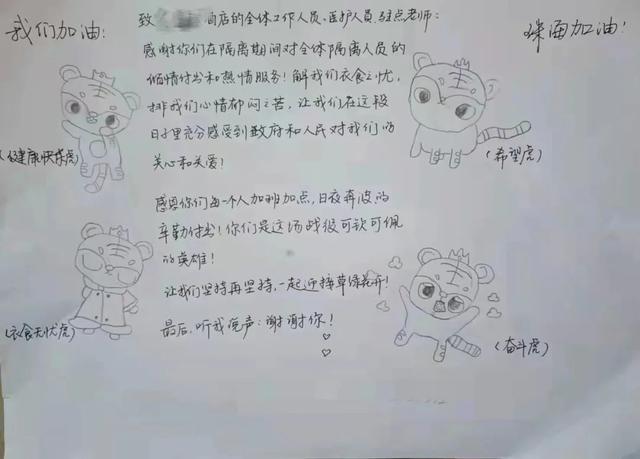 我们加油:
致 酒店的全体工作人员、医护人员、驻点老师:
珠海加油:
感谢你们在隔离期间对全体隔离人员的
倾情付出和热情服务!解我们衣食之忧,
排我们心情郁闷之苦,让我们在这段
日子里充分感受到政府和人民对我们的
关心和关爱!
(健康快乐虎)
(希望虎)
感恩你们每一个人加班加点,日夜奔波的
辛勤付出!你们是这场战役可钦可佩
的英雄!
让我们坚持再坚持,一起迎接草绿花开!
最后,听我说声:谢谢你!
(衣食无忧虎)
(奋斗虎)